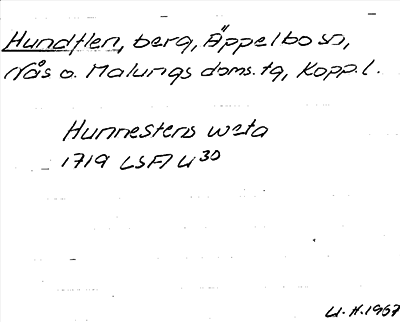 Hundflen, berg, Äppelbo sn,
Nås o. Malungs doms. tg, Kopp. l.
Hunnestens weta
1719 LSA U 30
U. H. 1967